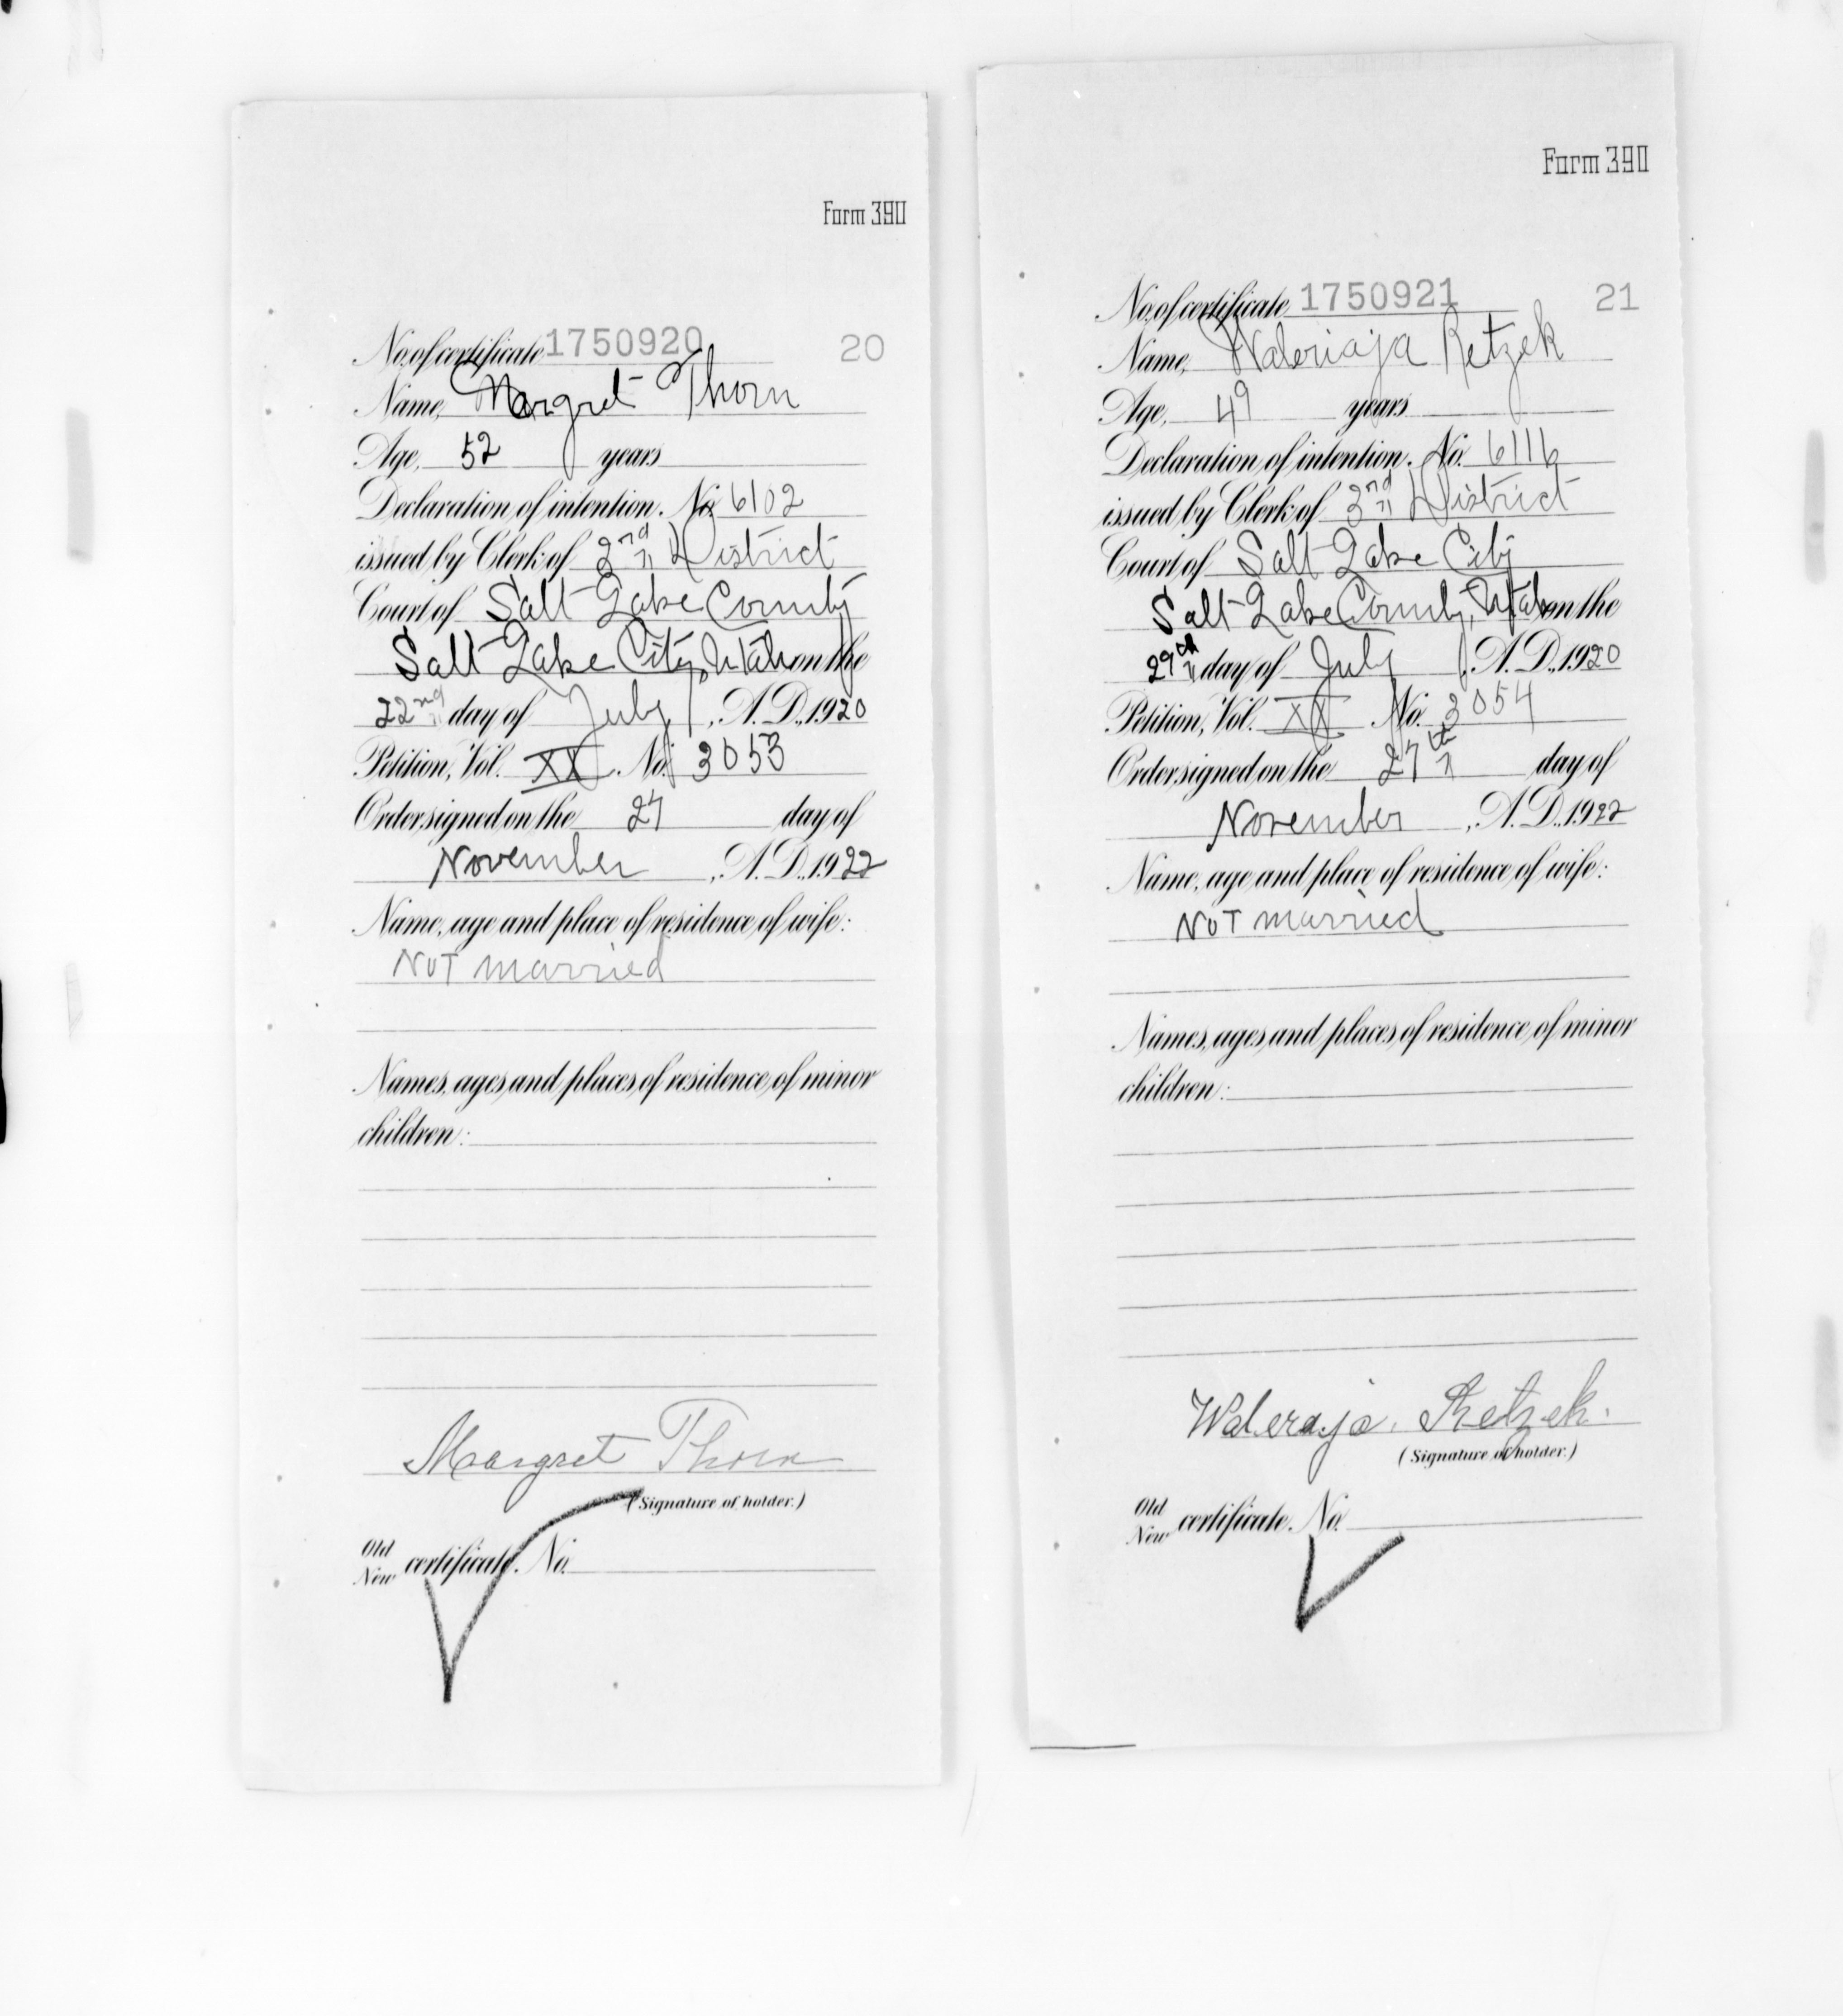 Form 390
No. of certificate 1750920 20
Name, Margret Thorn
Age, 52 years
Declaration of intention. No. 6102
issued by Clerk of 3rd District
Court of Salt Lake County
Salt Lake City, Utah on the
22nd day of July, A. D., 1920
Petition, Vol. XX No. 3053
Order signed on the 27 day of
November, A. D., 1922
Name, age and place of residence of wife:
NOT married
Names, ages and places of residence of minor
children:
Margret Thorn
(Signature of holder.)
Old
New certificate. No.
Form 390
No. of certificate 1750921 21
Name, Waleriaja Retzek
Age, 49 years
Declaration of intention. No. 6116
issued by Clerk of 3rd District
Court of Salt Lake City
Salt Lake County, Utah on the
29th day of July, A. D., 1920
Petition, Vol. XX No. 3054
Order signed on the 27th day of
November, A. D., 1922
Name, age and place of residence of wife:
NOT married
Names, ages and places of residence of minor
children:
Waleraja Retzek.
(Signature of holder.)
Old
New certificate. No.